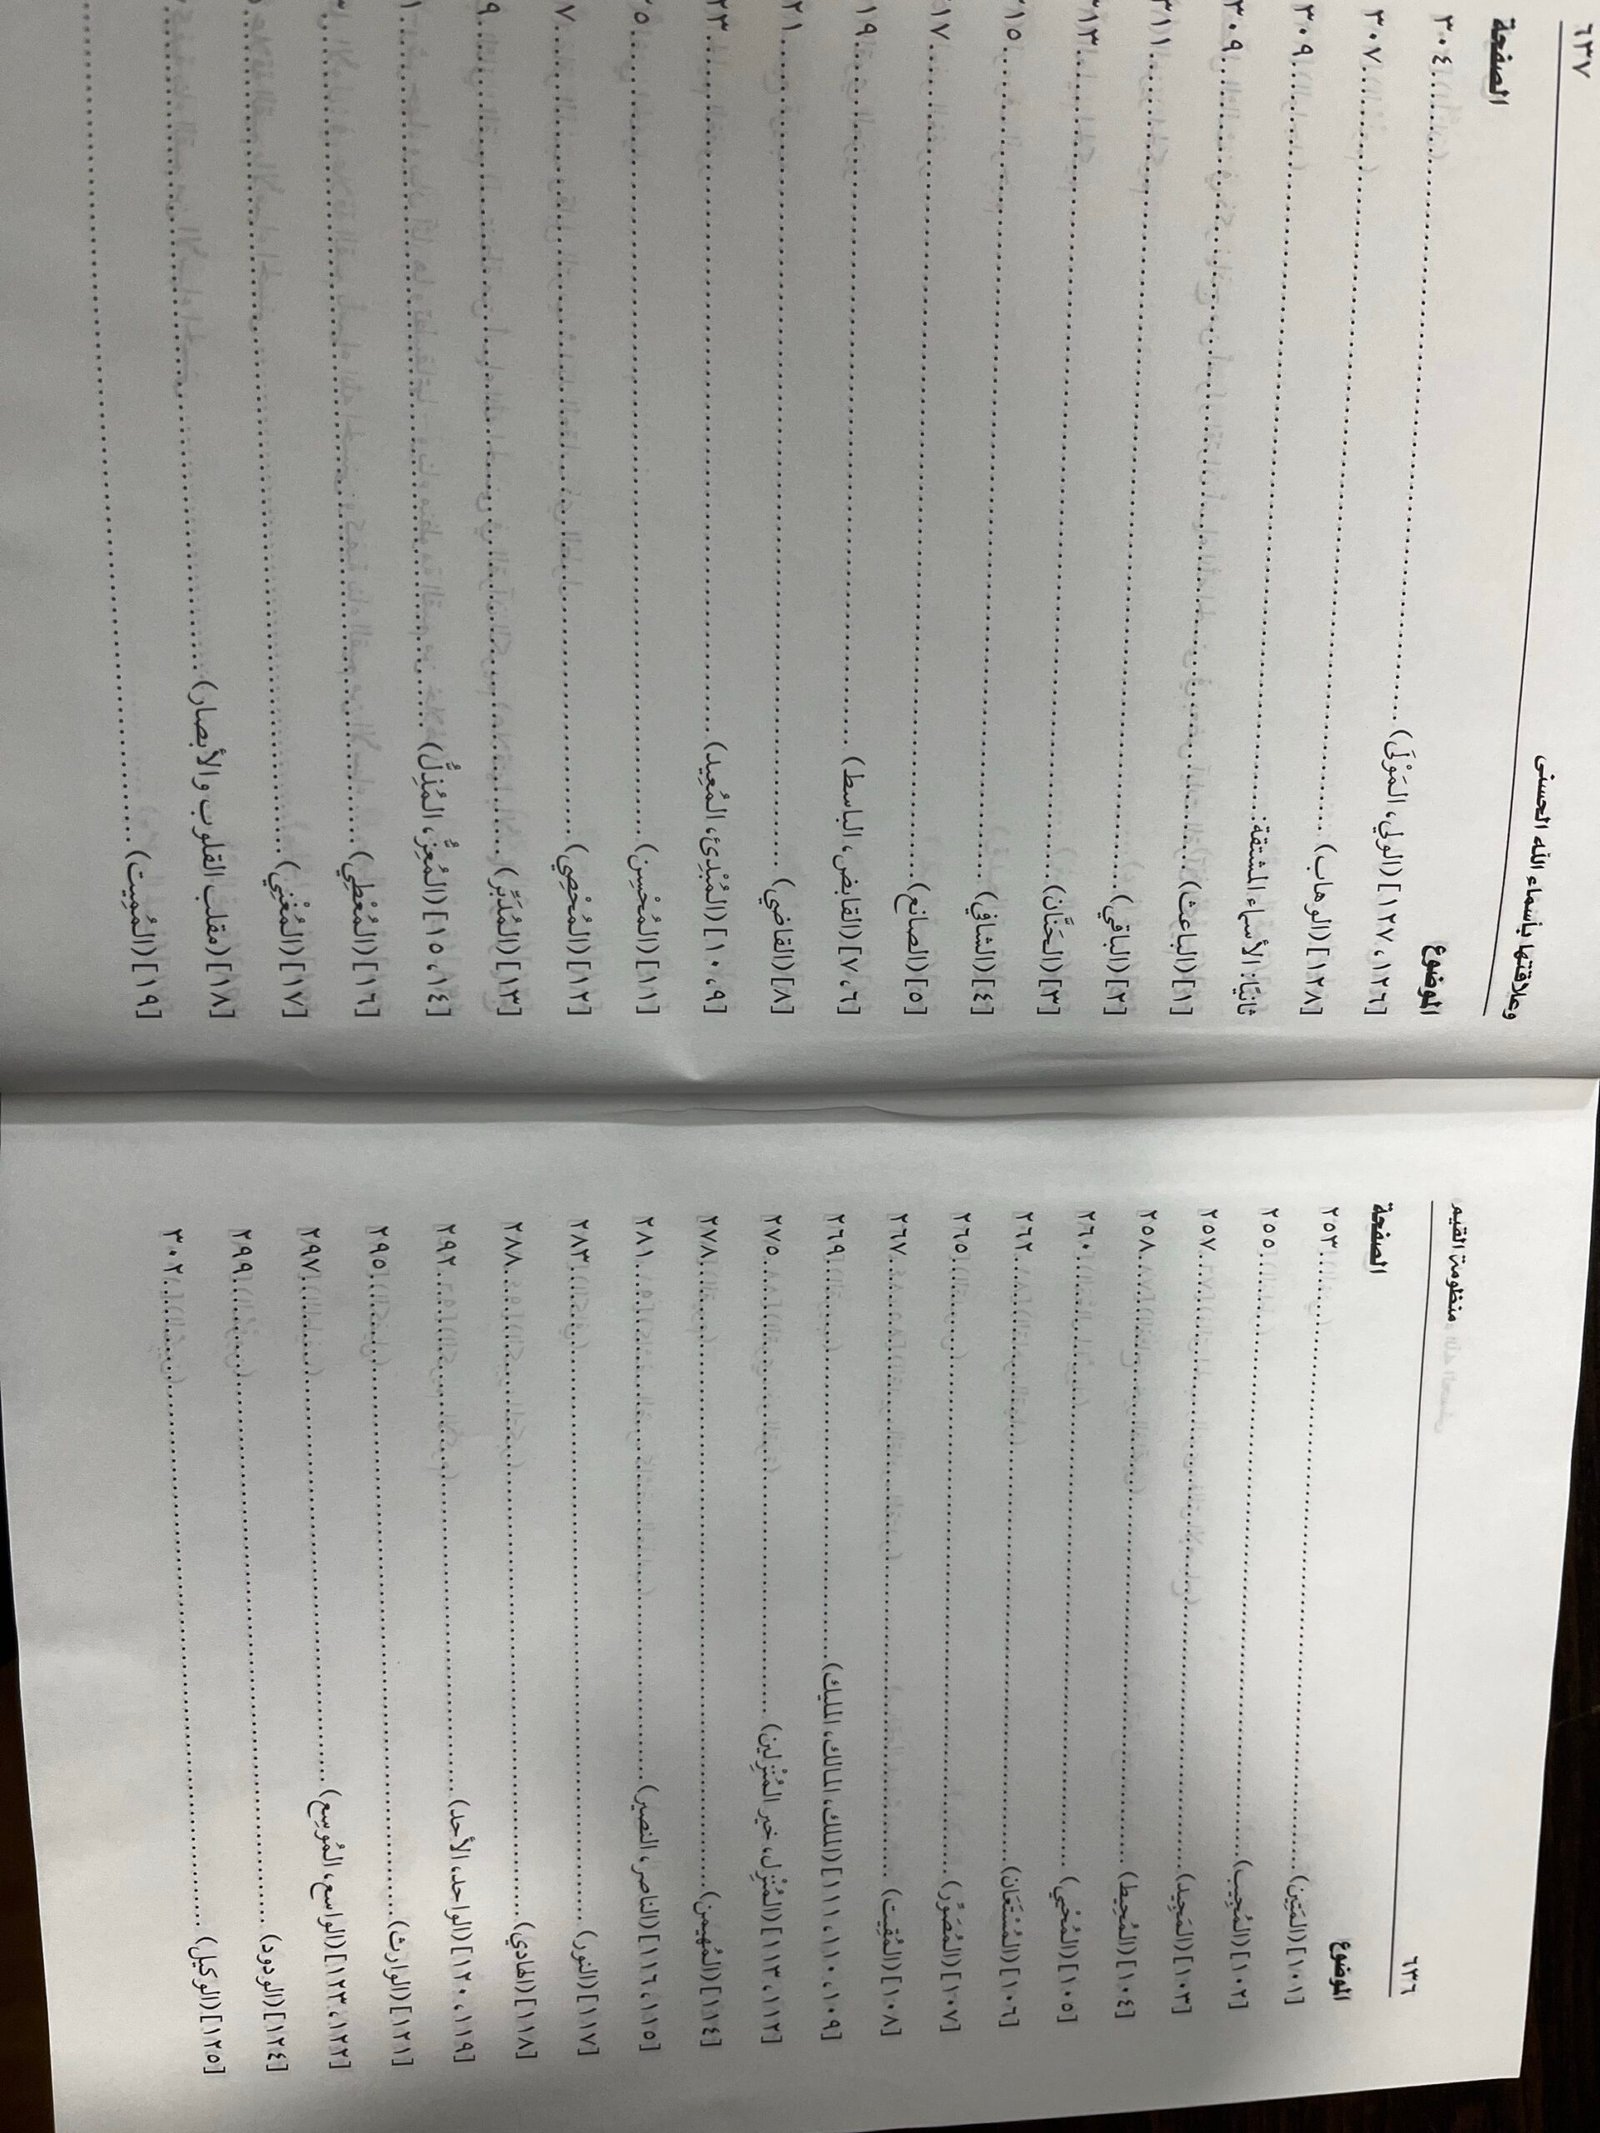 ٦٣٦ منظومة القيم
الموضوع الصفحة
[١٠١] (المَتِين) ........ ٢٥٣
[١٠٢] (المُجِيب) ........ ٢٥٥
[١٠٣] (المَجِيد) ........ ٢٥٧
[١٠٤] (المُحِيط) ........ ٢٥٨
[١٠٥] (المُحْيِي) ........ ٢٦٠
[١٠٦] (المُسْتَعَان) ........ ٢٦٢
[١٠٧] (المُصَوِّر) ........ ٢٦٥
[١٠٨] (المُقِيت) ........ ٢٦٧
[١٠٩، ١١٠، ١١١] (الملك، المالك، المليك) ........ ٢٦٩
[١١٢، ١١٣] (المُنْزِل، خير المُنْزِلين) ........ ٢٧٥
[١١٤] (المُهيمن) ........ ٢٧٨
[١١٥، ١١٦] (الناصر، النصير) ........ ٢٨١
[١١٧] (النور) ........ ٢٨٣
[١١٨] (الهادي) ........ ٢٨٨
[١١٩، ١٢٠] (الواحد، الأحد) ........ ٢٩٢
[١٢١] (الوارث) ........ ٢٩٥
[١٢٢، ١٢٣] (الواسع، المُوسِع) ........ ٢٩٧
[١٢٤] (الودود) ........ ٢٩٩
[١٢٥] (الوكيل) ........ ٣٠٢
وعلاقتها بأسماء الله الحسنى ٦٣٧
الموضوع الصفحة
[١٢٦، ١٢٧] (الولي، المَوْلَى) ........ ٣٠٤
[١٢٨] (الوهاب) ........ ٣٠٧
ثانيًا: الأسماء المشتقة: ........ ٣٠٩
[١] (الباعث) ........ ٣٠٩
[٢] (الباقي) ........ ٣١١
[٣] (الحَنَّان) ........ ٣١٣
[٤] (الشافي) ........ ٣١٥
[٥] (الصانع) ........ ٣١٧
[٦، ٧] (القابض، الباسط) ........ ١٩
[٨] (القاضي) ........ ٢١
[٩، ١٠] (المُبْدِئ، المُعِيد) ........ ٢٣
[١١] (المُحْسِن) ........ ٥
[١٢] (المُحْصِي) ........ ٧
[١٣] (المُدَبِّر) ........ ٩
[١٤، ١٥] (المُعِزُّ، المُذِلُّ) ........ ١
[١٦] (المُعْطِي) ........
[١٧] (المُغْنِي) ........
[١٨] (مقلب القلوب والأبصار) ........
[١٩] (المُمِيت) ........